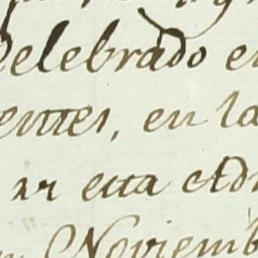 Celebrado en
entes, en la
ar esta Ad
Noviemb